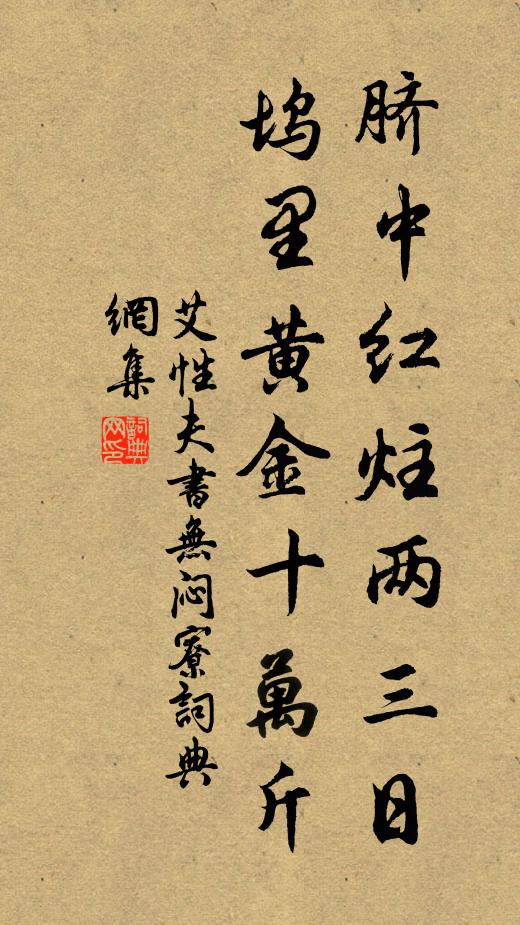 脐中红炷两三日
坞里黄金十萬斤
艾性夫書無闷寮詞典
網集
詞典
网印